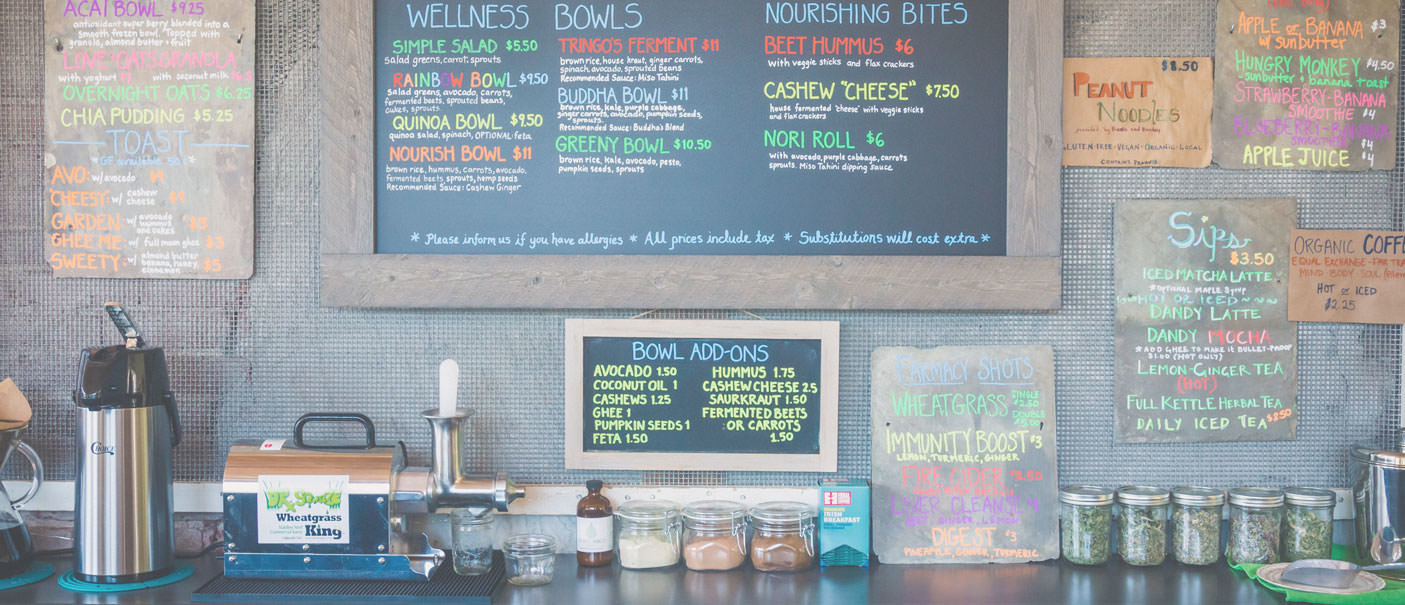 ACAI BOWL $9.25
antioxidant super berry blended into a
smooth frozen bowl. Topped with
granola, almond butter + fruit
LOVE GOATS GRANOLA
with yoghurt with coconut milk
OVERNIGHT OATS $6.25
CHIA PUDDING $5.25
TOAST
*GF available .50¢*
AVO: w/ avocado
CHEESY: w/ cashew
cheese
GARDEN: w/ avocado
hummus
and cukes
GHEE ME: w/ full moon ghee $3
SWEETY: w/ almond butter
banana, honey,
cinnamon $5
WELLNESS BOWLS
SIMPLE SALAD $5.50
salad greens, carrot, sprouts
RAINBOW BOWL $9.50
salad greens, avocado, carrots,
fermented beets, sprouted beans,
cukes, sprouts
QUINOA BOWL $9.50
quinoa salad, spinach, OPTIONAL: feta
NOURISH BOWL $11
brown rice, hummus, carrots, avocado,
fermented beets, sprouts, hemp seeds
Recommended Sauce: Cashew Ginger
TRINGO'S FERMENT $11
brown rice, house kraut, ginger carrots,
spinach, avocado, sprouted beans
Recommended Sauce: Miso Tahini
BUDDHA BOWL $11
brown rice, kale, purple cabbage,
ginger carrots, avocado, pumpkin seeds,
sprouts.
Recommended Sauce: Buddha's Blend
GREENY BOWL $10.50
brown rice, kale, avocado, pesto,
pumpkin seeds, sprouts
NOURISHING BITES
BEET HUMMUS $6
with veggie sticks and flax crackers
CASHEW "CHEESE" $7.50
house fermented 'cheese' with veggie sticks
and flax crackers
NORI ROLL $6
with avocado, purple cabbage, carrots
sprouts. Miso Tahini dipping sauce
* Please inform us if you have allergies * All prices include tax * Substitutions will cost extra *
$8.50
PEANUT
NOODLES
GLUTEN-FREE · VEGAN · ORGANIC · LOCAL
CONTAINS PEANUTS
APPLE OR BANANA $3
w/ sunbutter
HUNGRY MONKEY $4.50
-sunbutter + banana toast
STRAWBERRY-BANANA
SMOOTHIE $4
BLUEBERRY-BANANA
SMOOTHIE $4
APPLE JUICE $4
Sips
$3.50
ICED MATCHA LATTE
*OPTIONAL MAPLE SYRUP
HOT OR ICED~~~
DANDY LATTE
DANDY MOCHA
*ADD GHEE TO MAKE IT BULLET-PROOF
$1.00 (HOT ONLY)
LEMON-GINGER TEA
(HOT)
FULL KETTLE HERBAL TEA
DAILY ICED TEA $2.50
ORGANIC COFFE
EQUAL EXCHANGE - FAIR TRA
MIND BODY SOUL
HOT OR ICED
$2.25
BOWL ADD-ONS
AVOCADO 1.50
COCONUT OIL 1
CASHEWS 1.25
GHEE 1
PUMPKIN SEEDS 1
FETA 1.50
HUMMUS 1.75
CASHEW CHEESE 2.5
SAURKRAUT 1.50
FERMENTED BEETS
OR CARROTS
1.50
FARMACY SHOTS
WHEATGRASS SINGLE
$2.50
DOUBLE
$5.00
IMMUNITY BOOST $3
LEMON, TURMERIC, GINGER
FIRE CIDER
LIVER CLEANSE
BEET, GINGER, LEMON
DIGEST $3
PINEAPPLE, GINGER, TURMERIC
Choice
Wheatgrass
King
IRISH
BREAKFAST